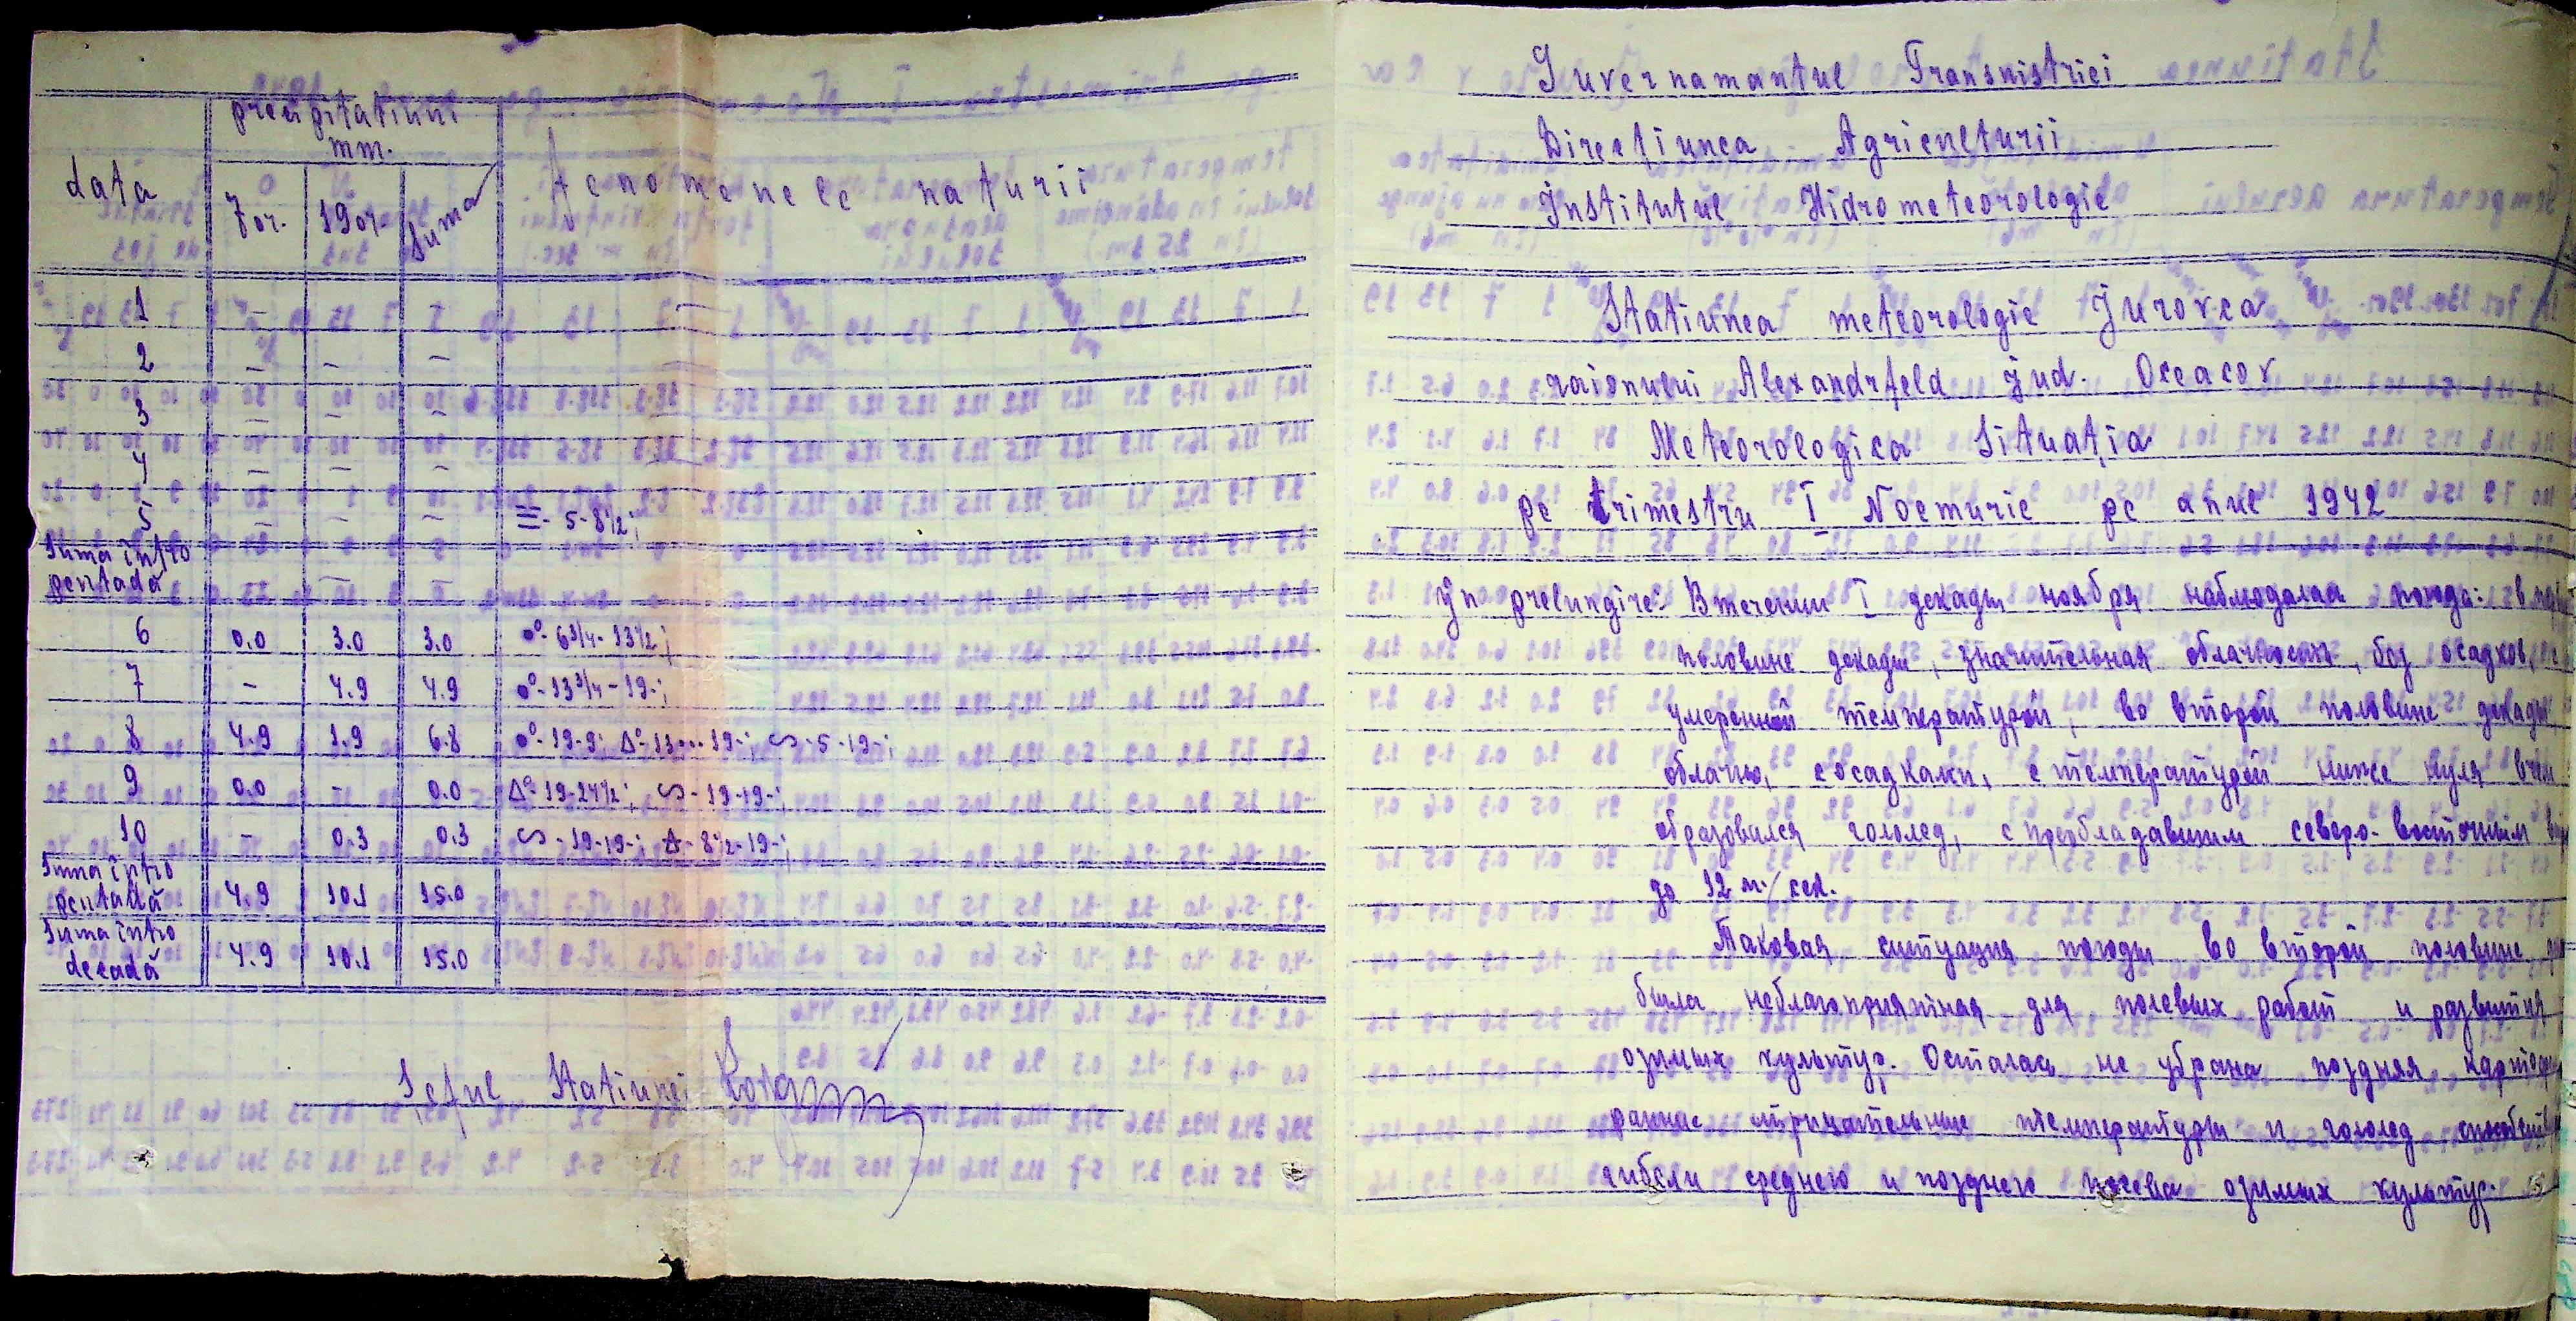 data precipitatiuni mm. fenomenele naturii
7 or. 19 or. Suma
1 – – –
2 – – –
3 – – –
4 – – –
5 – – – ≡- 5-8½;
Suma într'o pentadă – – –
6 0.0 3.0 3.0 6¾-13½;
7 – 4.9 4.9 13¾-19-;
8 4.9 1.9 6.8 19-9; Δ°-13...19-; ∾-5-19-;
9 0.0 – 0.0 Δ°-19-24½; ∾-19-19-;
10 – 0.3 0.3 ∾-19-19-; Δ-8½-19-;
Suma într'o pentadă 4.9 10.1 15.0
Suma într'o decadă 4.9 10.1 15.0
Șeful Statiunei
Guvernamantul Transnistriei
Direcțiunea Agriculturii
Institutul Hidrometeorologic
Statiunea meteorologic Jurovca
raionului Alexandrfeld jud. Oceacov
Meteorologica Situația
pe trimestru I Noemvrie pe anul 1942
În prelungire: В течении I декады ноября наблюдалась погода: в
половине декады, значительная облачность, без осадков,
умеренной температурой, во второй половине декады
облачно, с осадками, с температурой ниже нуля
образовался гололед, с преобладавшим северо-восточным
до 12 м/сек.
Таковая ситуация погоды во второй половине
была неблагоприятная для полевых работ и развития
озимых культур. Осталась не убрана поздняя
ранние отрицательные температуры и гололед
гибели среднего и позднего посева озимых культур.